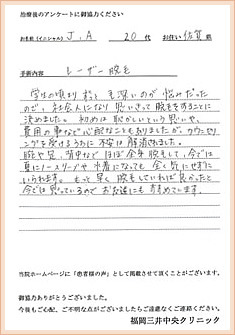 治療後のアンケートに御協力ください
お名前（イニシャル） J.A 20代 お住い 佐賀県
手術内容 レーザー脱毛
学生の頃より ずっと 毛深いのが 悩みだった
ので、社会人になり 思いきって 脱毛をすることに
決めました。初めは 恥かしいという思いや、
費用の事など心配なこともありましたが、カウンセリ
ングを受けるうちに 不安は 解消されました。
腕や足、背中など ほぼ全身脱毛して、今では
真にノースリーブや水着になっても 全く気にせずに
いられます。もっと早く 脱毛していれば良かったと
今では思っているので お友達にも すすめています。
当院ホームページに「患者様の声」として掲載させて頂くことがございます。
御協力ありがとうございました。
今後もご心配、ご不明な点がございましたらご遠慮なくご連絡ください。
福岡三井中央クリニック